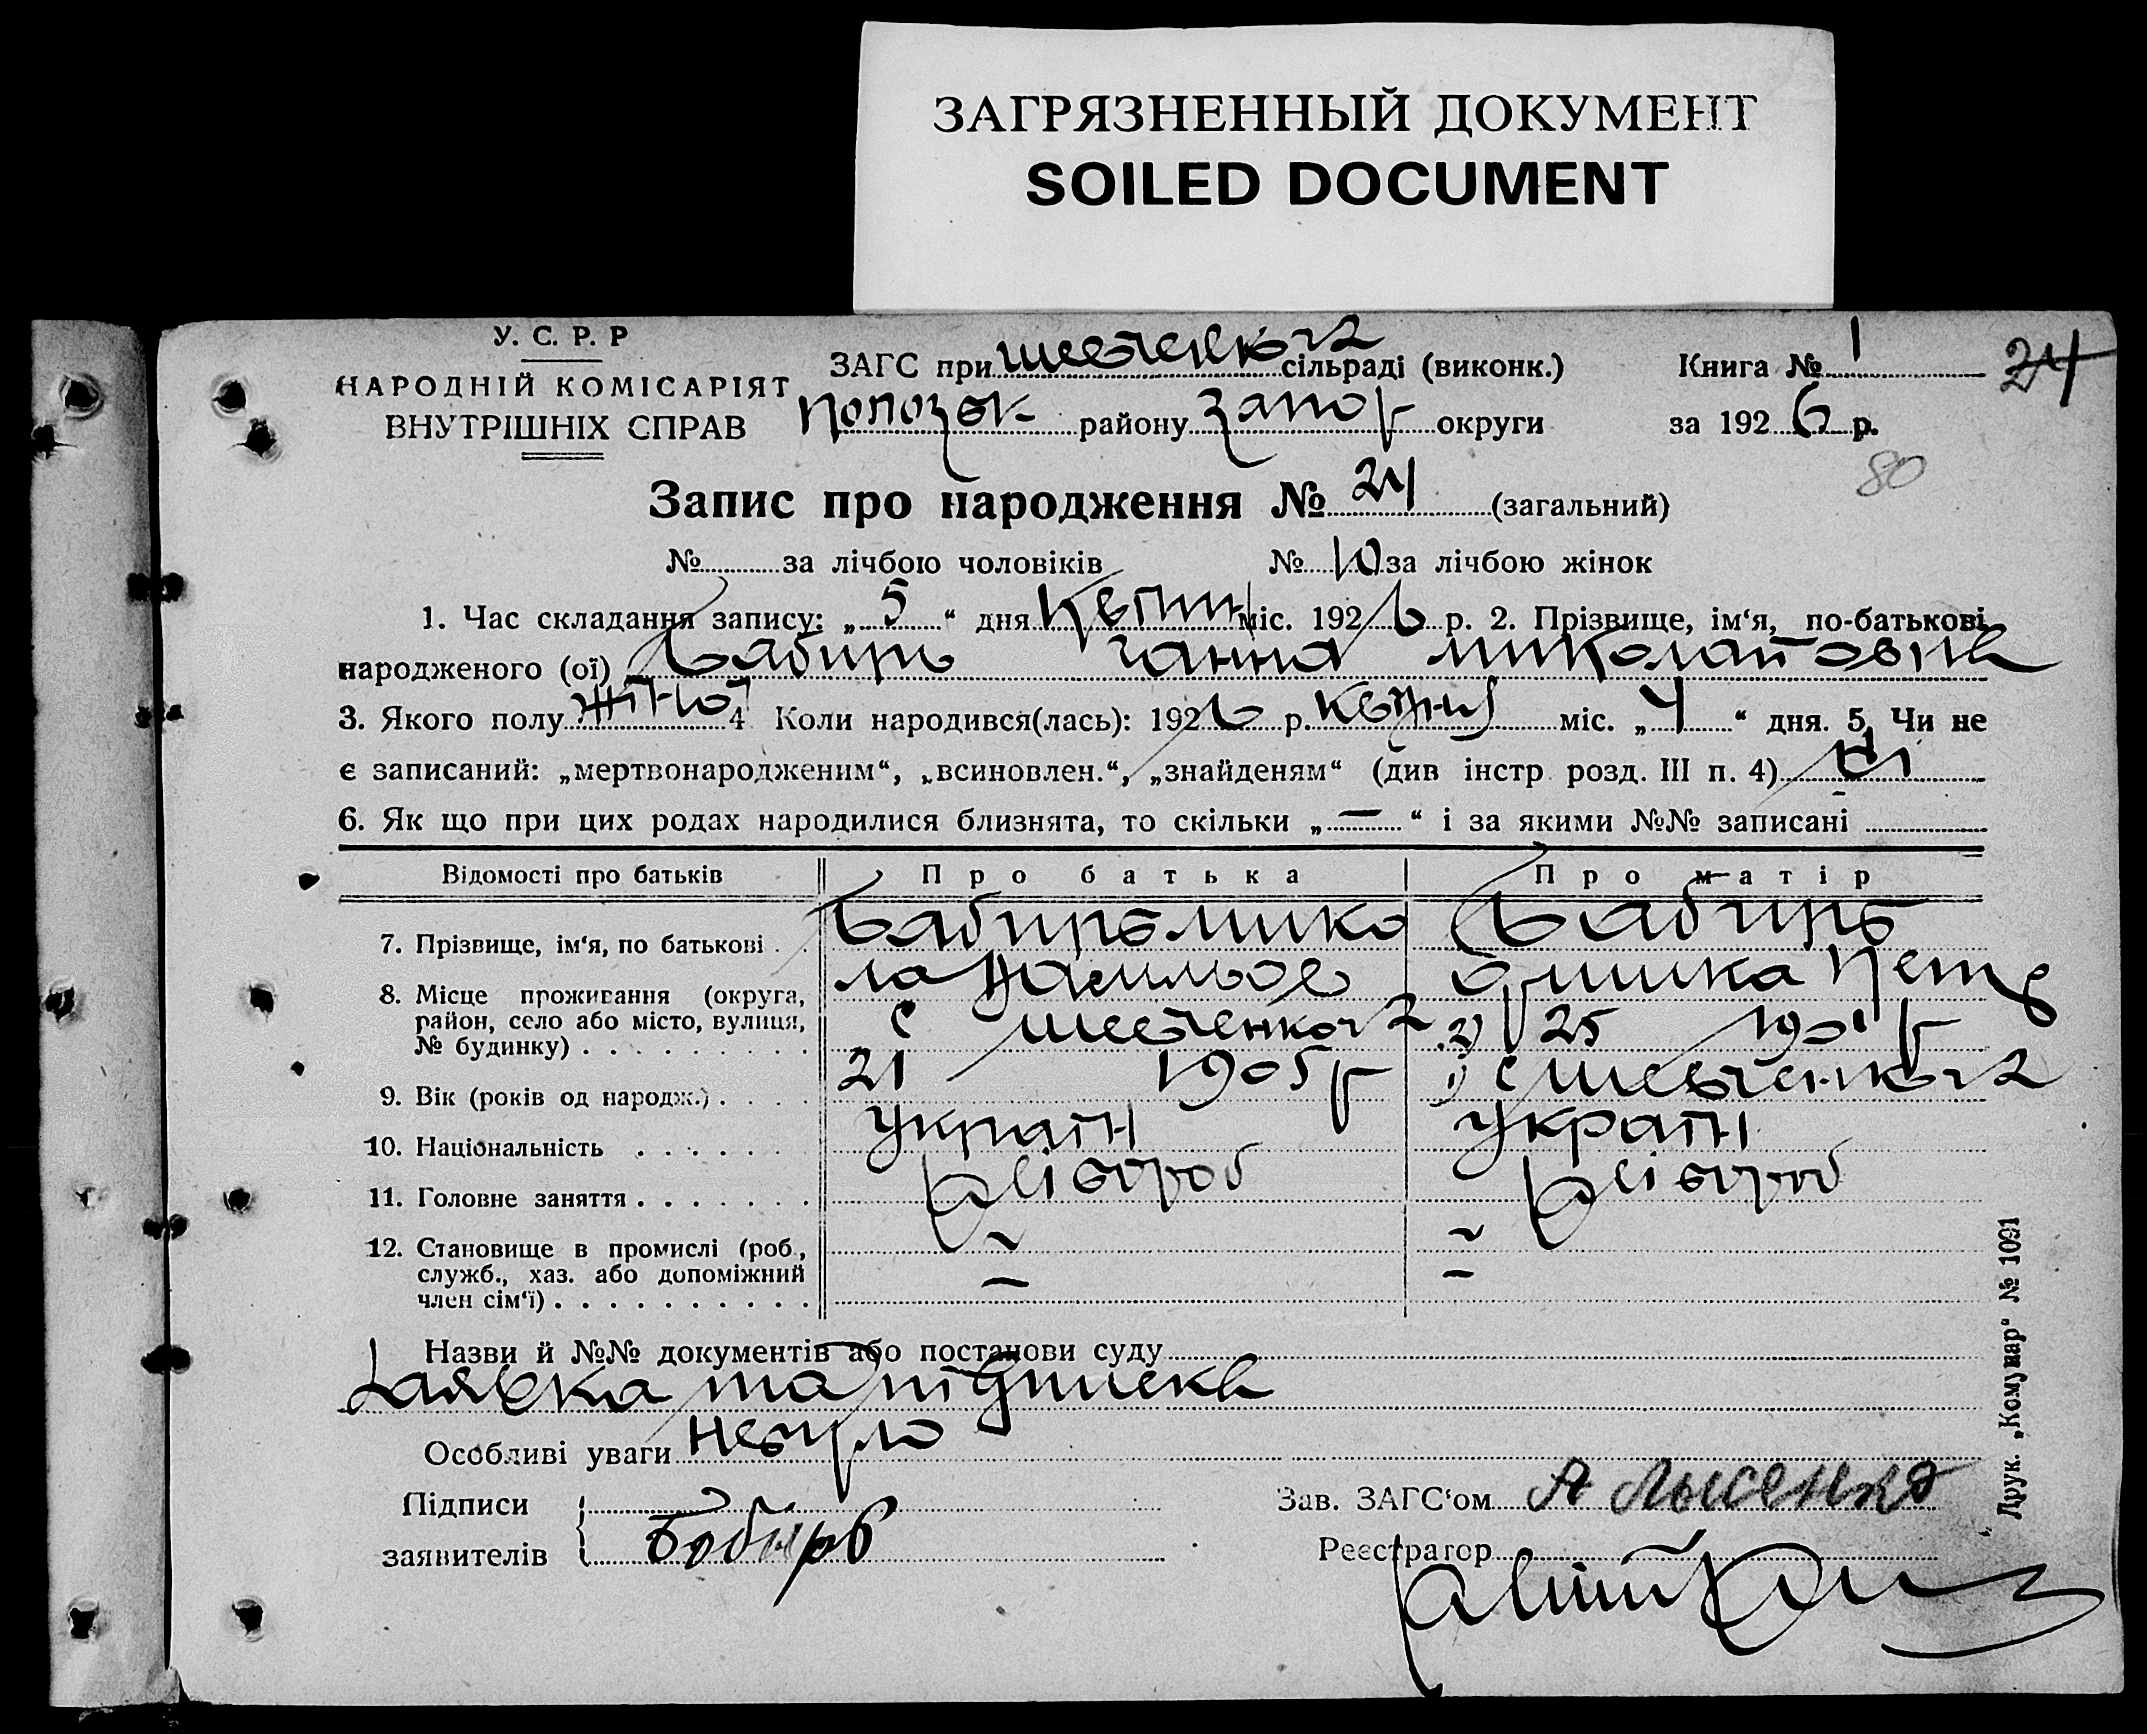 ЗАГРЯЗНЕННЫЙ ДОКУМЕНТ
SOILED DOCUMENT
У. С. Р. Р
НАРОДНІЙ КОМІСАРІЯТ
ВНУТРІШНІХ СПРАВ
ЗАГС при сільраді (виконк.)
району Запор округи
Книга № 1
за 1926 р.
24
80
Запис про народження № 24 (загальний)
№ за лічбою чоловіків № 10 за лічбою жінок
1. Час складання запису: „5“ дня Квітн міс. 1926 р. 2. Прізвище, ім‘я, по-батькові
народженого (ої) Бабирь Ганна Миколаївна
3. Якого полу жіно 4 Коли народився(лась): 1926 р. Квітня міс. „4“ дня. 5. Чи не
є записаний: „мертвонародженим“, „всиновлен.“, „знайденям“ (див інстр розд. III п. 4) ні
6. Як що при цих родах народилися близнята, то скільки „—“ і за якими №№ записані
Відомості про батьків Про батька Про матір
7. Прізвище, ім‘я, по батькові Бабирь Мико Бабирь
ла
8. Місце проживання (округа,
район, село або місто, вулиця,
№ будинку)
с 2) 25 1901 р
9. Вік (років од народж.) 21 1905 р 1) с
10. Національність Україн Україн
11. Головне заняття хлібороб хлібороб
12. Становище в промислі (роб.,
служб., хаз. або допоміжний
член сім‘ї) — —
Назви й №№ документів або постанови суду
Заявка та підписка
Особливі уваги не було
Підписи
заявителів Бабирь
Зав. ЗАГС‘ом А Лысенко
Реєстратор
Друк. „Комунар“ № 1091